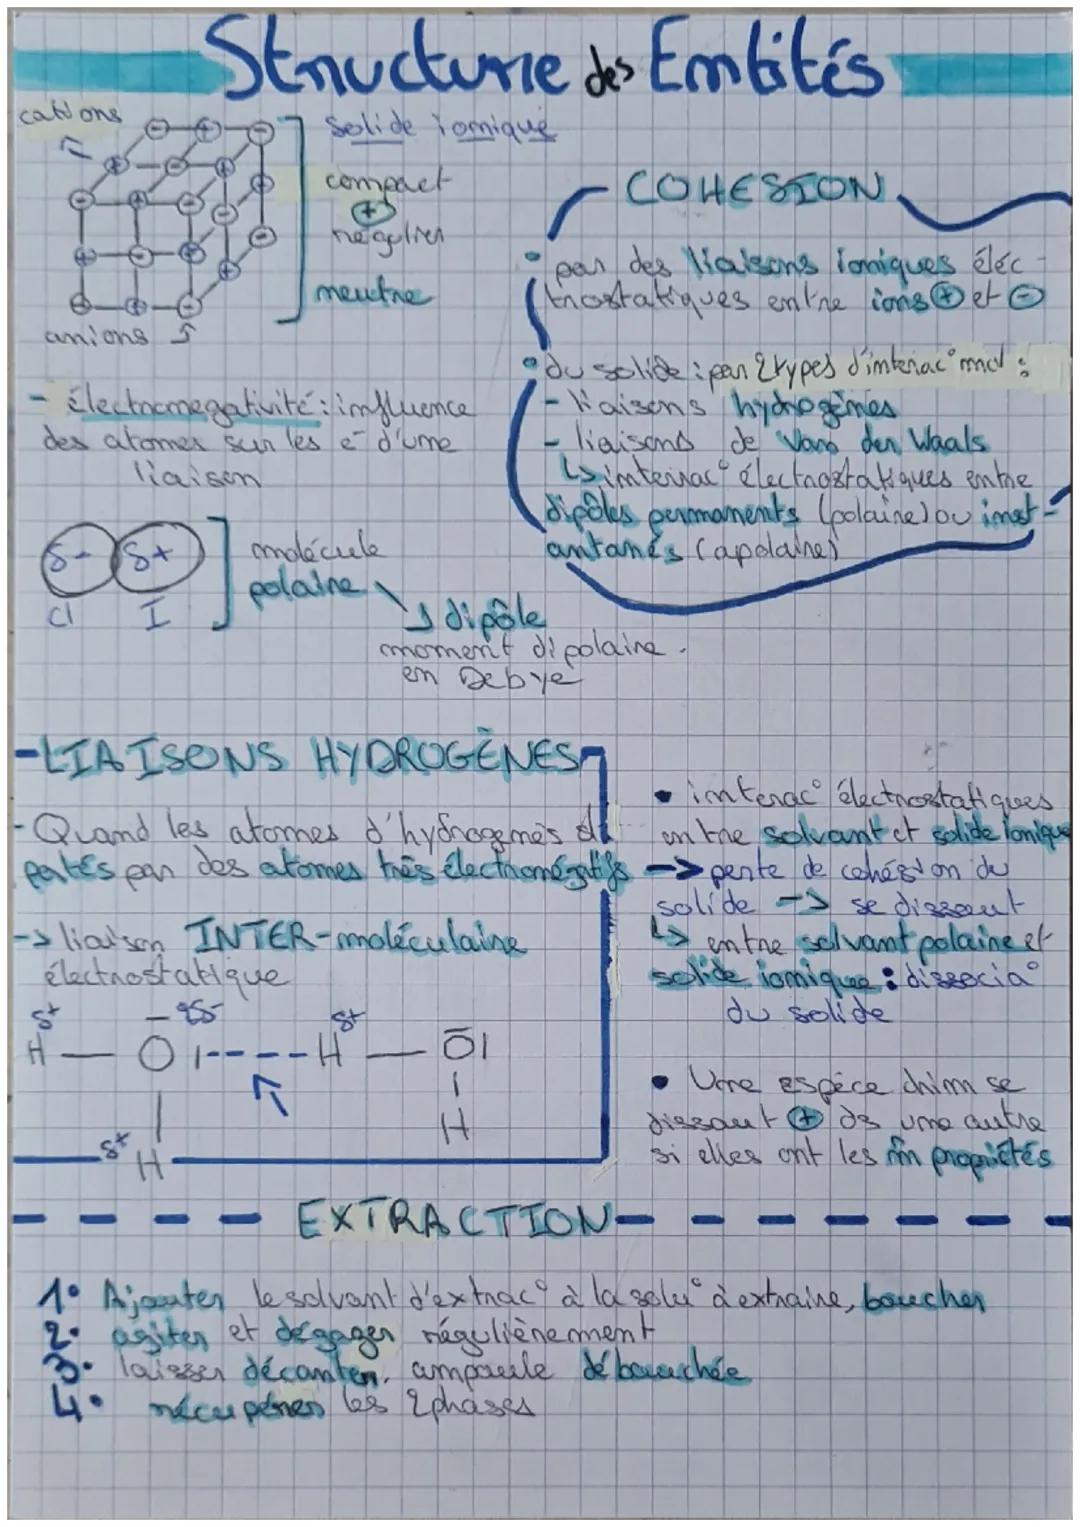 Structure des Entités
cations
solide ionique
compact
+
régulier
neutre
anions
- électronegativité : influence
des atomes sur les e⁻ d'une
liaison
δ- δ+
Cl I
molécule
polaire
dipôle
moment dipolaire.
en Debye
COHESION
• par des liaisons ioniques éléc-
trostatiques entre ions ⊕ et ⊖
• du solide : par 2 types d'interac° mol :
- liaisons hydrogènes
- liaisons de Van der Waals
↳ interac° électrostatiques entre
dipôles permanents (polaire) ou inst-
antanés (apolaire)
- LIAISONS HYDROGÈNES
- Quand les atomes d'hydrogènes
portés par des atomes très électronégatifs
-> liaison INTER-moléculaire
électrostatique
δ+ 2δ- δ+
H — O I---- H — O I
I
H
δ+ H
• interac° électrostatiques
entre solvant et solide ionique
-> perte de cohésion du
solide -> se dissout
↳ entre solvant polaire et
solide ionique : dissocia°
du solide
• Une espèce chim se
dissout ⊕ ds une autre
si elles ont les m̂ propriétés
EXTRACTION
1° Ajouter le solvant d'extrac° à la solu° à extraire, boucher
2° agiter et dégager régulièrement
3° laisser décanter, ampoule débouchée
4° récupérer les 2 phases